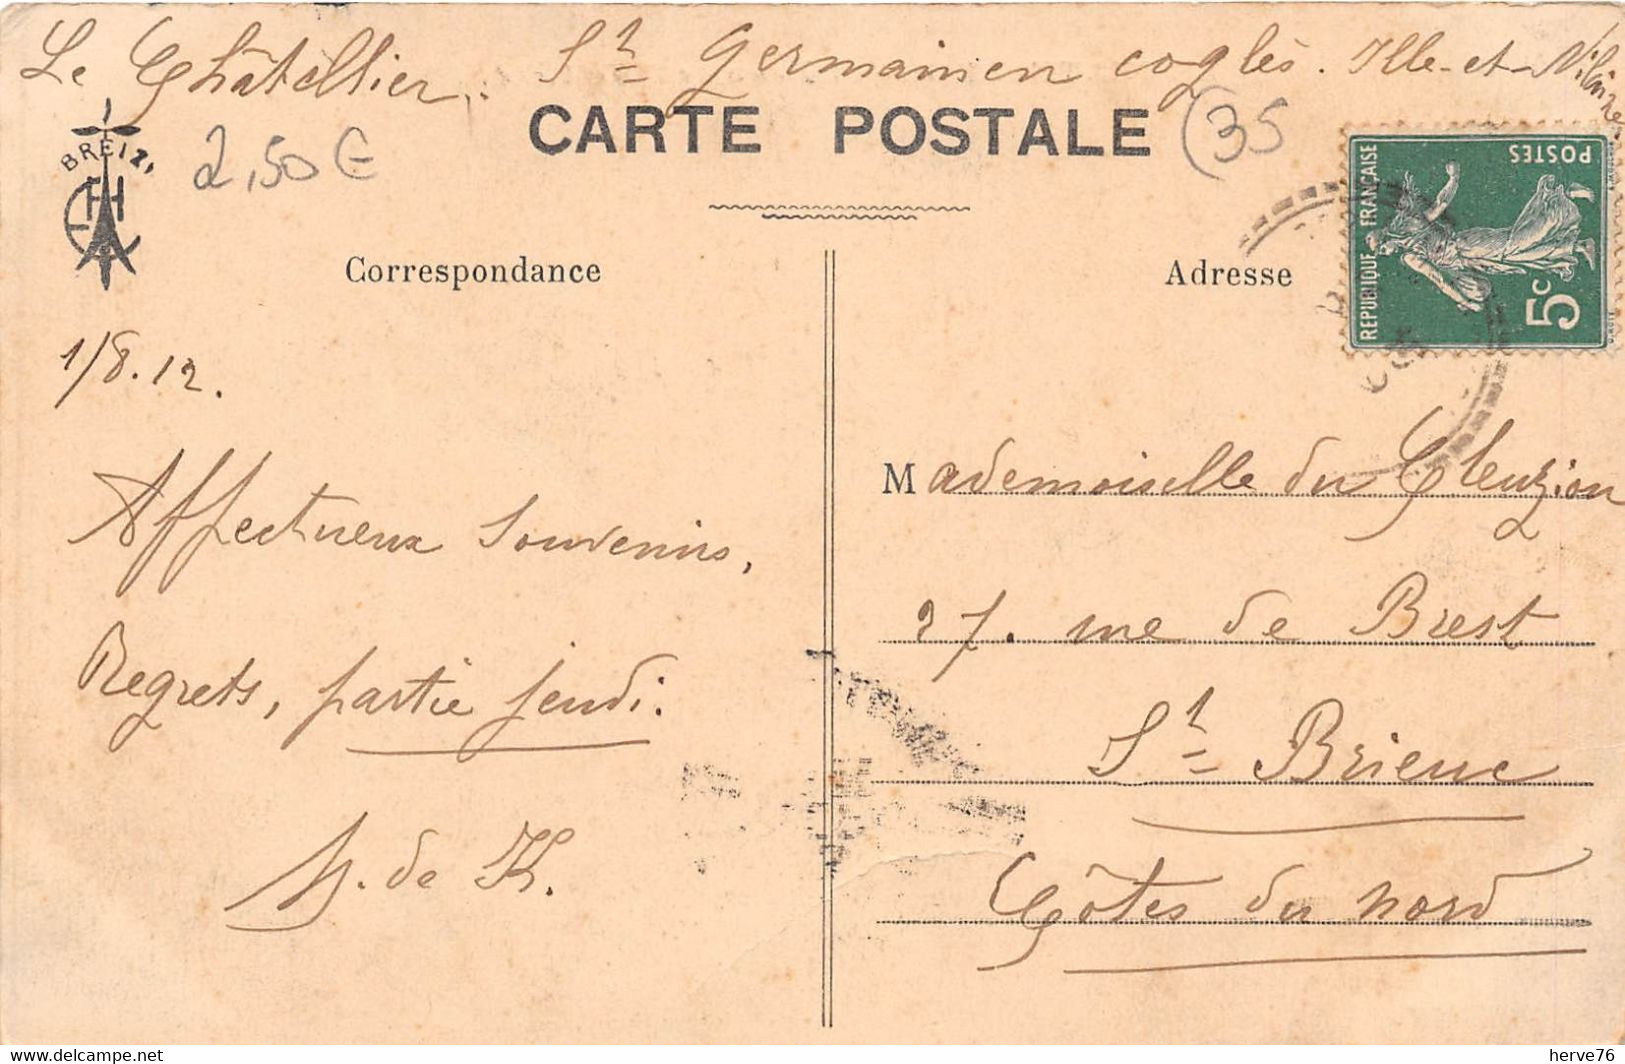 Le Châtellier. St Germain en coglès. Ille-et-Vilaine
BREIZ
2,50 €
CARTE POSTALE
(35
REPUBLIQUE FRANÇAISE
POSTES
5c
Correspondance
Adresse
1/8.12.
Mademoiselle du Cleuziou
Affectueux Souvenirs,
27. rue de Brest
Regrets, partie jeudi.
St Brieuc
de K.
Côtes du nord
www.delcampe.net
herve76